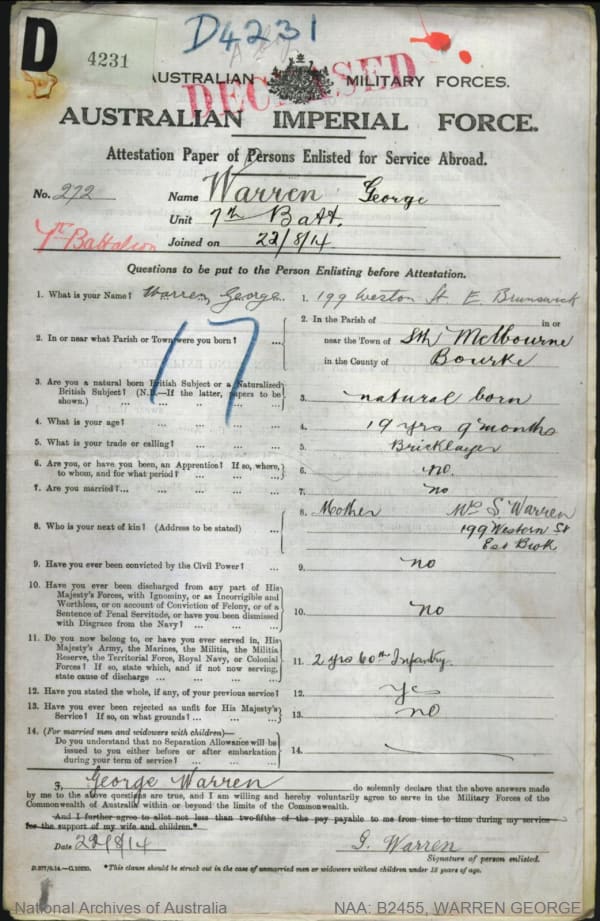 D4231
D
4231
AUSTRALIAN MILITARY FORCES.
DECEASED
AUSTRALIAN IMPERIAL FORCE.
Attestation Paper of Persons Enlisted for Service Abroad.
No. 272 Name Warren George
Unit 7th Batt.
7th Battalion Joined on 22/8/14
Questions to be put to the Person Enlisting before Attestation.
1. What is your Name? Warren, George. 1. 199 Weston St. E. Brunswick
2. In or near what Parish or Town were you born? ... 2. In the Parish of in or
near the Town of Sth Melbourne
in the County of Bourke
17
3. Are you a natural born British Subject or a Naturalized
British Subject? (N.B.—If the latter, papers to be
shown.) ... ... ... ... 3. natural born
4. What is your age? ... ... ... ... 4. 19 yrs 9 months
5. What is your trade or calling? ... ... ... 5. Bricklayer
6. Are you, or have you been, an Apprentice? If so, where,
to whom, and for what period? ... ... ... 6. no.
7. Are you married?... ... ... ... ... 7. no
8. Who is your next of kin? (Address to be stated) ... 8. Mother Mrs S Warren
199 Western St
East Bwk
9. Have you ever been convicted by the Civil Power? ... 9. no
10. Have you ever been discharged from any part of His
Majesty's Forces, with Ignominy, or as Incorrigible and
Worthless, or on account of Conviction of Felony, or of a
Sentence of Penal Servitude, or have you been dismissed
with Disgrace from the Navy? ... ... ... 10. no
11. Do you now belong to, or have you ever served in, His
Majesty's Army, the Marines, the Militia, the Militia
Reserve, the Territorial Force, Royal Navy, or Colonial
Forces? If so, state which, and if not now serving,
state cause of discharge ... ... ... ... 11. 2 yrs 60th Infantry.
12. Have you stated the whole, if any, of your previous service? 12. Yes
13. Have you ever been rejected as unfit for His Majesty's
Service? If so, on what grounds? ... ... ... 13. no
14. (For married men and widowers with children)—
Do you understand that no Separation Allowance will be
issued to you either before or after embarkation
during your term of service? ... ... ... 14.
I, George Warren do solemnly declare that the above answers made
by me to the above questions are true, and I am willing and hereby voluntarily agree to serve in the Military Forces of the
Commonwealth of Australia within or beyond the limits of the Commonwealth.
And I further agree to allot not less than two-fifths of the pay payable to me from time to time during my service
for the support of my wife and children.*
Date 22/8/14 G. Warren
Signature of person enlisted.
*This clause should be struck out in the case of unmarried men or widowers without children under 18 years of age.
National Archives of Australia NAA: B2455, WARREN GEORGE